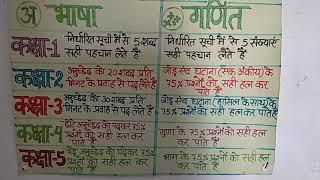 अ भाषा
गणित
कक्षा-1
निर्धारित सूची में से 5 शब्द
सही पहचान लेते हैं
निर्धारित सूची में से 5 संख्याएं
सही पहचान लेते हैं
कक्षा-2
अनुच्छेद को 20 शब्द प्रति
मिनट के प्रवाह से पढ़ लेते हैं
जोड़ एवं घटाना (एक अंकीय) के
75% प्रश्नों को सही हल कर
पाते हैं
कक्षा-3
अनुच्छेद को 30 शब्द प्रति
मिनट के प्रवाह से पढ़ लेते हैं
जोड़ एवं घटाना (हासिल के साथ) के
75% प्रश्नों को सही हल कर
पाते हैं
कक्षा-4
छोटे अनुच्छेद को पढ़कर 75%
प्रश्नों को सही हल कर
पाते हैं
गुणा के 75% प्रश्नों को सही हल
कर पाते हैं
कक्षा-5
बड़े अनुच्छेद को पढ़कर 75%
प्रश्नों को सही हल कर
पाते हैं
भाग के 75% प्रश्नों को सही हल
कर पाते हैं